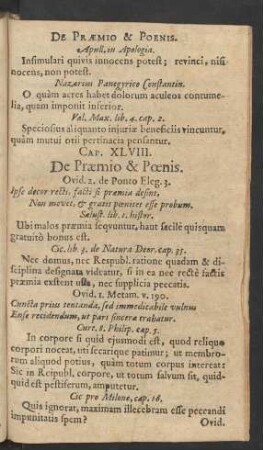 DE PRÆMIO & POENIS.
Apull. in Apologia.
Insimulari quivis innocens potest; revinci, nisi
nocens, non potest.
Nazarius Panegyrico Constantin.
O quàm acres habet dolorum aculeos contume-
lia, quam imponit inferior.
Val. Max. lib. 4. cap. 2.
Speciosius aliquanto injuriæ beneficiis vincuntur,
quàm mutui odii pertinacia pensantur.
CAP. XLVIII.
De Præmio & Pœnis.
Ovid. 2. de Ponto Eleg. 3.
Ipse decor recti, facti si præmia desint,
Non movet, & gratis pœnitet esse probum.
Salust. lib. 1. histor.
Ubi malos præmia seqvuntur, haut facilè quisquam
gratuitò bonus est.
Cic. lib. 3. de Natura Deor. cap. 35.
Nec domus, nec Respubl. ratione quadam & di-
sciplina designata videatur, si in ea nec rectè factis
præmia extent ulla, nec supplicia peccatis.
Ovid. 1. Metam. v. 190.
Cuncta prius tentanda, sed immedicabile vulnus
Ense recidendum, ut pars sincera trahatur.
Cic. 8. Philip. cap. 5.
In corpore si quid ejusmodi est, quod reliquo
corpori noceat, uri secarique patimur; ut membro-
rum aliquod potius, quàm totum corpus intereat:
Sic in Reipubl. corpore, ut totum salvum sit, quid-
quid est pestiferum, amputetur.
Cic pro Milone, cap. 16.
Quis ignorat, maximam illecebram esse peccandi
impunitatis spem?
Ovid.